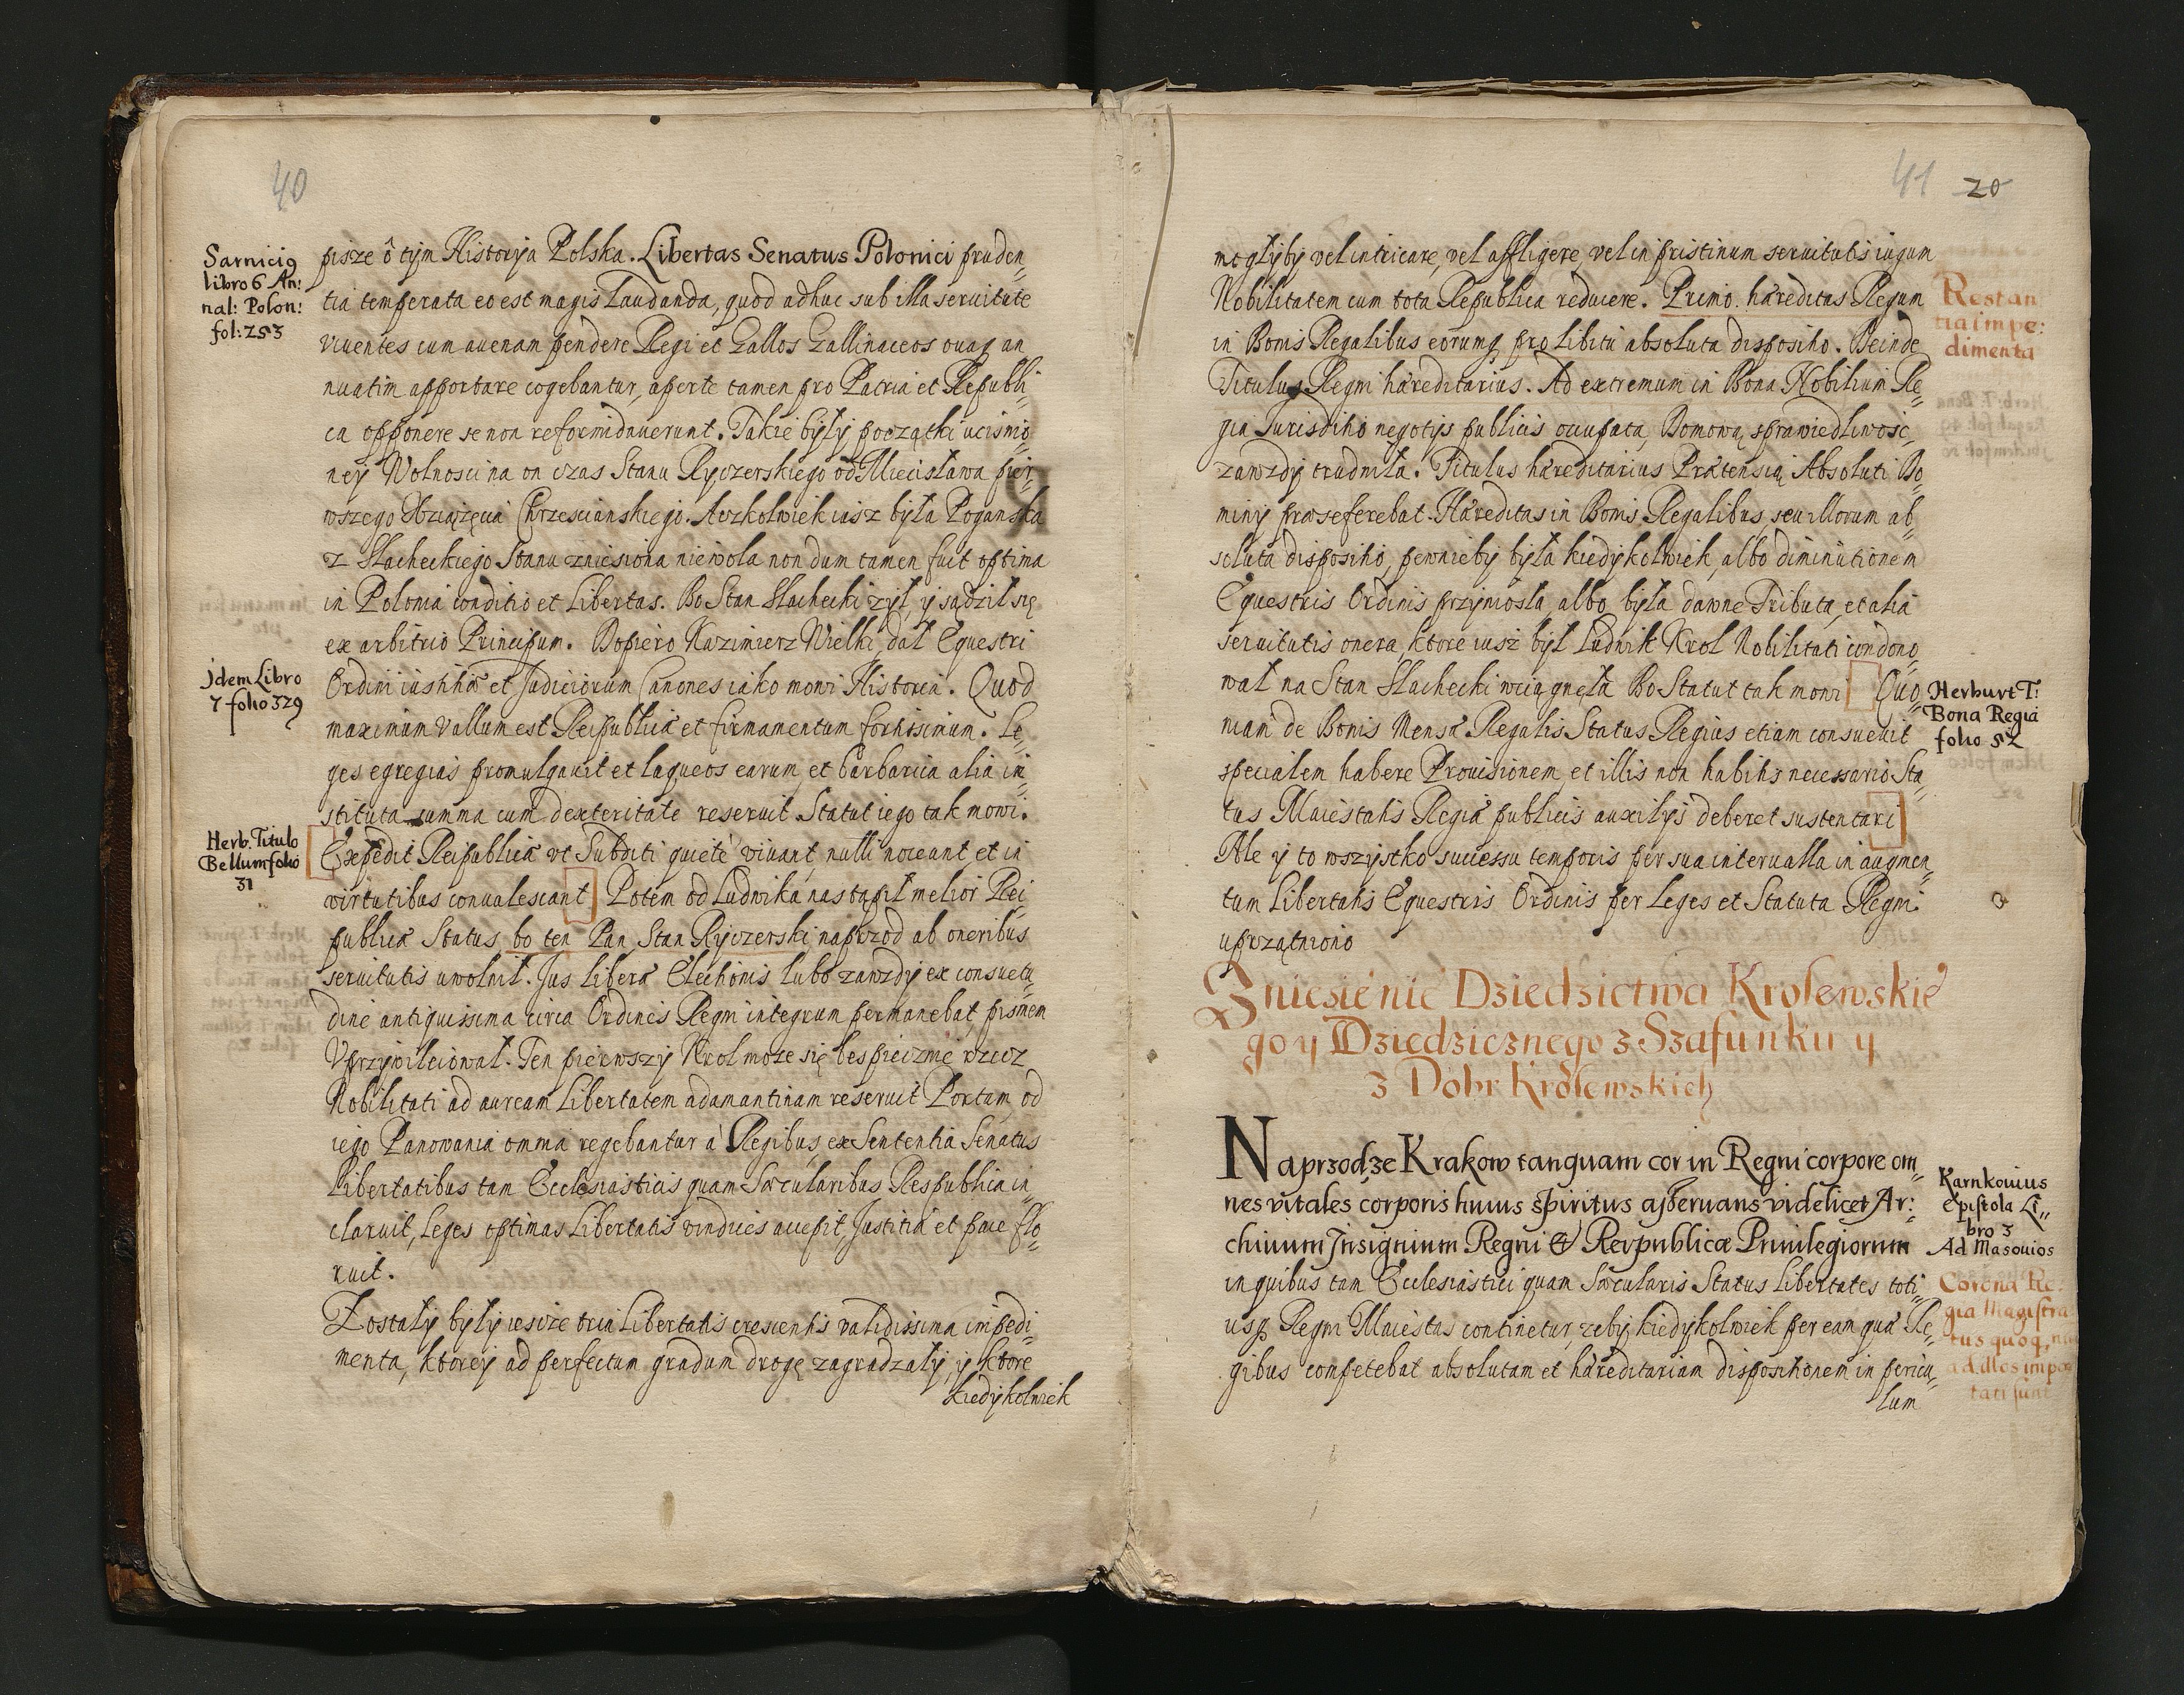 40
Sarnici9
libro 6 An:
nal: Polon:
fol: 253
pisze ô tym Historyja Polska. Libertas Senatus Polonici pruden„
tia temperata eo est magis Laudanda, quod adhuc sub illa seruitute
viuentes cum auenam pendere Regi et Gallos Gallinaceos ouaq an
nuatim apportare cogebantur, aperte tamen pro Patria et Republi„
ca opponere se non reformidauerunt. Takie były początki ucisnio„
ney Wolnosci na on czas Stanu Ryczerskiego od Miecisława pier„
wszego Xiążęcia Chrzescianskiego. Aczkolwiek iusz była Poganska
z Slacheckiego Stanu zniesiona niewola non dum tamen fuit optima
in Polonia conditio et Libertas. Bo Stan Slachecki zył y sądził się
ex arbitrio Principum. Dopiero Kazimierz Wielki, dał Equestri
Jdem Libro
7 folio 329
Ordini iustitiæ et Judiciorum Canones iako mowi Historia. Quod
maximum Vallum est Reipublicæ et firmamentum fortissimum. Le„
ges egregias promulgauit et laqueos earum et barbarica alia in„
stituta summa cum dexteritate reseruit Statut iego tak mowi.
Herb. Titulo
Bellum folio
31
Expedit Reipublicæ vt Subditi quietè viuant, nulli noceant et in
virtutibus conualescant Potem od Ludwika nastąpił melior Rei„
publicæ Status, bo ten Pan Stan Ryczerski naprzod ab oneribus
seruitutis uwolnił. Jus liberæ Electionis lubo zawzdy ex consuetu„
dine antiquissima circa Ordines Regni integrum permanebat, pismem
Vprzywileiował. Ten pierwszy Krol może się bespiecznie rzecz
Nobilitati ad auream Libertatem adamantinam reseruit Portam, od
iego Panowania omnia regebantur à Regibus, ex Sententia Senatus
Libertatibus tam Ecclesiasticis quam Sæcularibus Respublica in„
claruit, Leges optimas Libertatis vindices accepit, Justitia et pace flo„
ruit.
Zostały były iescze tria Libertatis crescentis validissima impedi„
menta, ktorey ad perfectum gradum drogę zagradzały, y ktore
kiedykolwiek
41 20
mogłyby vel intricare, vel affligere, vel in pristinum seruitutis iugum
Nobilitatem cum tota Republica reducere. Primo. hæreditas Regum
Restan
tia impe:
dimenta
in Bonis Regalibus eorumq pro libitu absoluta dispositio. Deinde
Titulus Regni hæreditarius. Ad extremum in Bona Nobilium Re„
gia Iurisditio negotys publicis occupata, Domową sprawiedliwość
zawzdy trudniła. Titulus hæreditarius Prætensią Absoluti Do„
miny præseferebat. Hæreditas in Bonis Regalibus, seu illorum ab„
soluta dispositio, pewnieby była kiedykolwiek, albo diminutionem
Equestris Ordinis przyniosła, albo była dawne Tributa, et alia
seruitutis onera, ktore iusz był Ludwik Krol Nobilitati condono„
wał na Stan Slachecki wciągnęła Bo Statut tak mowi Quo„
Herburt T:
Bona Regia
folio 52
niam de Bonis Mensæ Regalis Status Regius etiam consueuit
specialem habere Prouisionem, et illis non habitis necessario Sta„
tus Maiestatis Regiæ publicis auxilys deberet sustentari
Ale y to wszystko successu temporis per sua interualla in augmen„
tum Libertatis Equestris Ordinis per Leges et Statuta Regni.
uprzątniono
Zniesienie Dziedzictwa Krolewskie
go y Dziedzicznego z Szafunku y
z Dobr Krolewskich
Naprzod, ze Krakow tanquam cor in Regni corpore om„
nes vitales corporis huius spiritus asseruans videlicet Ar:
chiuum Jnsignium Regni & Reipublicæ Priuilegiorum
Karnkouius
Epistola Li„
bro 3
Ad Masouios
in quibus tam Ecclesiastici quam Sæcularis Status Libertates toti„
usq Regni Maiestas continetur, zeby kiedykolwiek per eam quæ Re„
gibus competebat absolutam et hæreditariam dispositionem in pericu„
lum
Corona Re„
gia Magistra
tus quoq,
ad illos impor
tati sunt